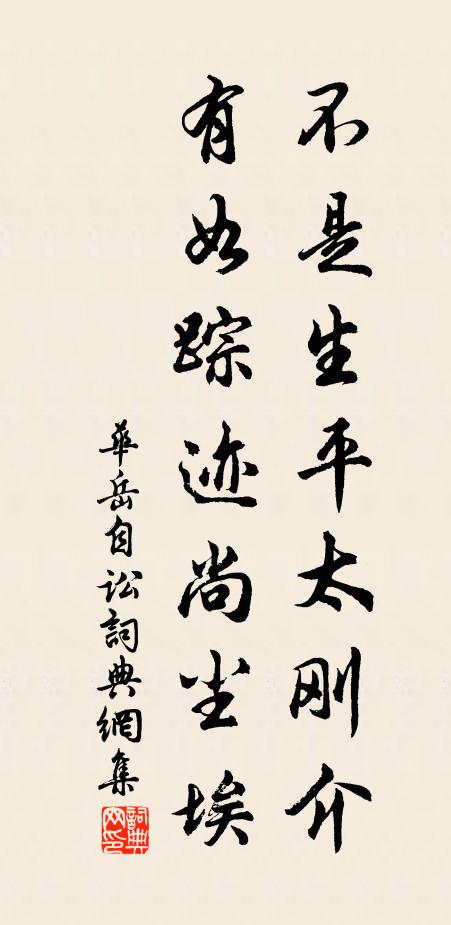 不是生平太刚介
有如踪迹尚尘埃
華岳自讼詞典網集
詞典网印